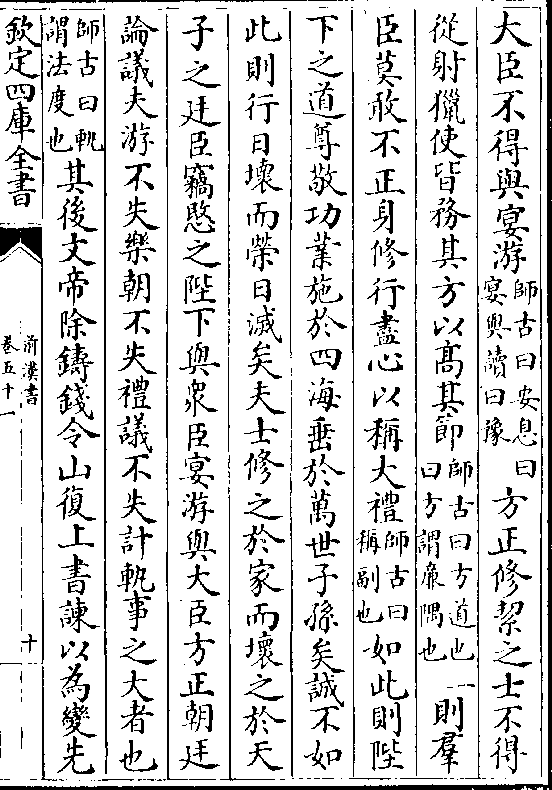 大臣不得與宴游師古曰安息曰宴與讀曰豫方正修絜之士不得
從射獵使皆務其方以髙其節師古曰方道也一曰方謂廉隅也則羣
臣莫敢不正身修行盡心以稱大禮師古曰稱副也如此則陛
下之道尊敬功業施於四海垂於萬世子孫矣誠不如
此則行日壞而榮日滅矣夫士修之於家而壞之於天
子之廷臣竊愍之陛下與衆臣宴游與大臣方正朝廷
論議夫游不失樂朝不失禮議不失計軌事之大者也
師古曰軌謂法度也其後文帝除鑄錢令山復上書諫以為變先
欽定四庫全書
前漢書
卷五十一
十